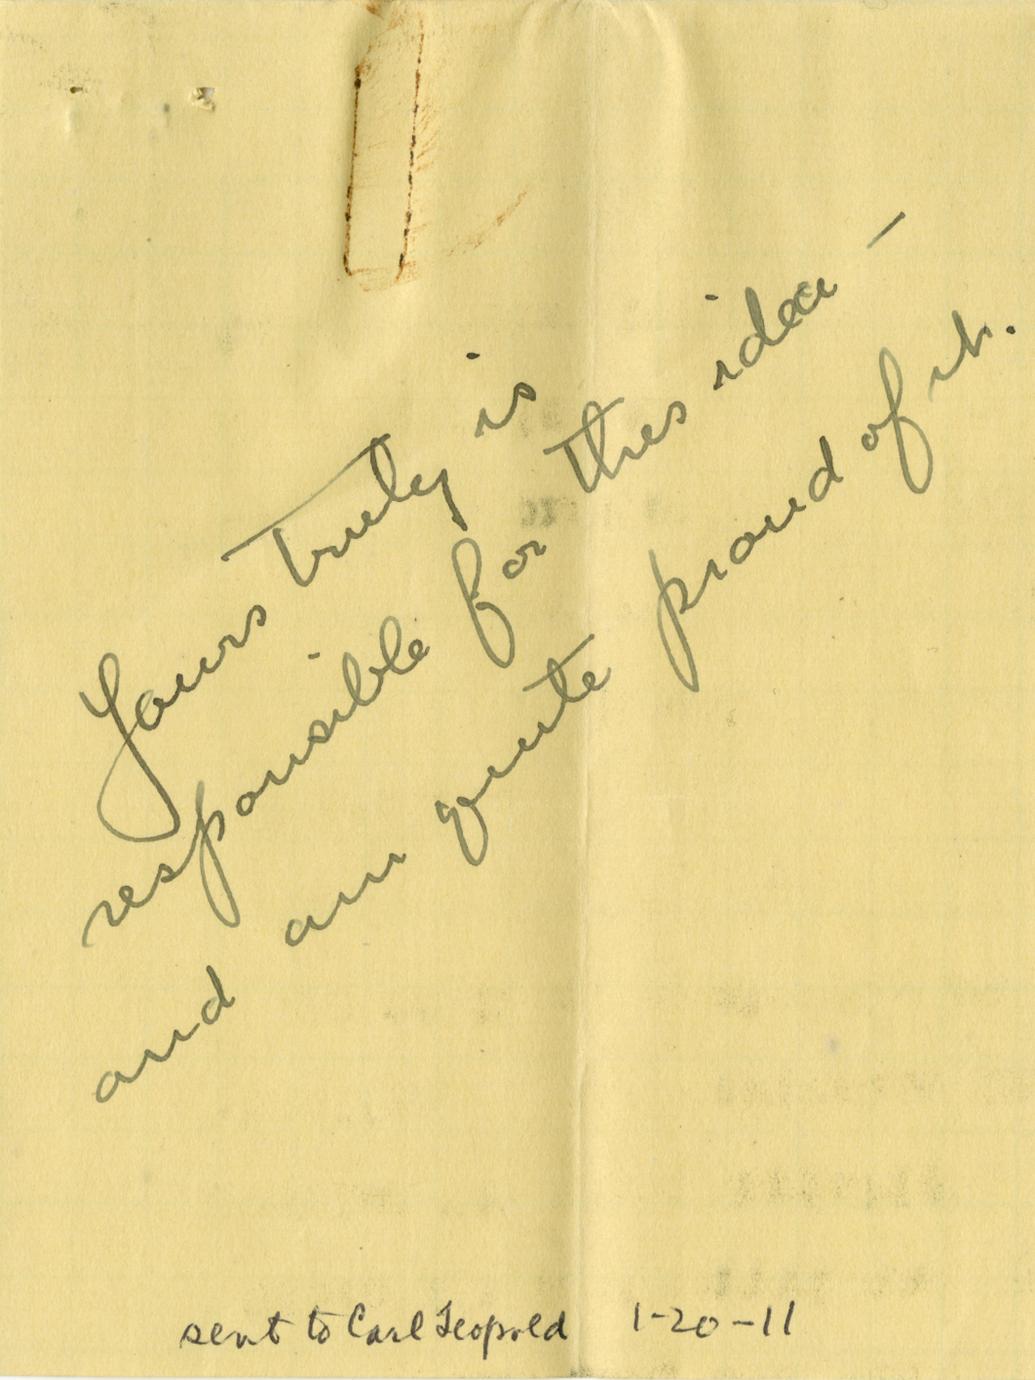 Yours truly is
responsible for this idea —
and am quite proud of it.
sent to Carl Leopold 1-20-11